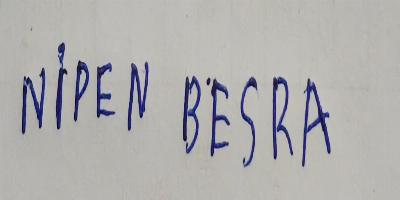 NIPEN BESRA